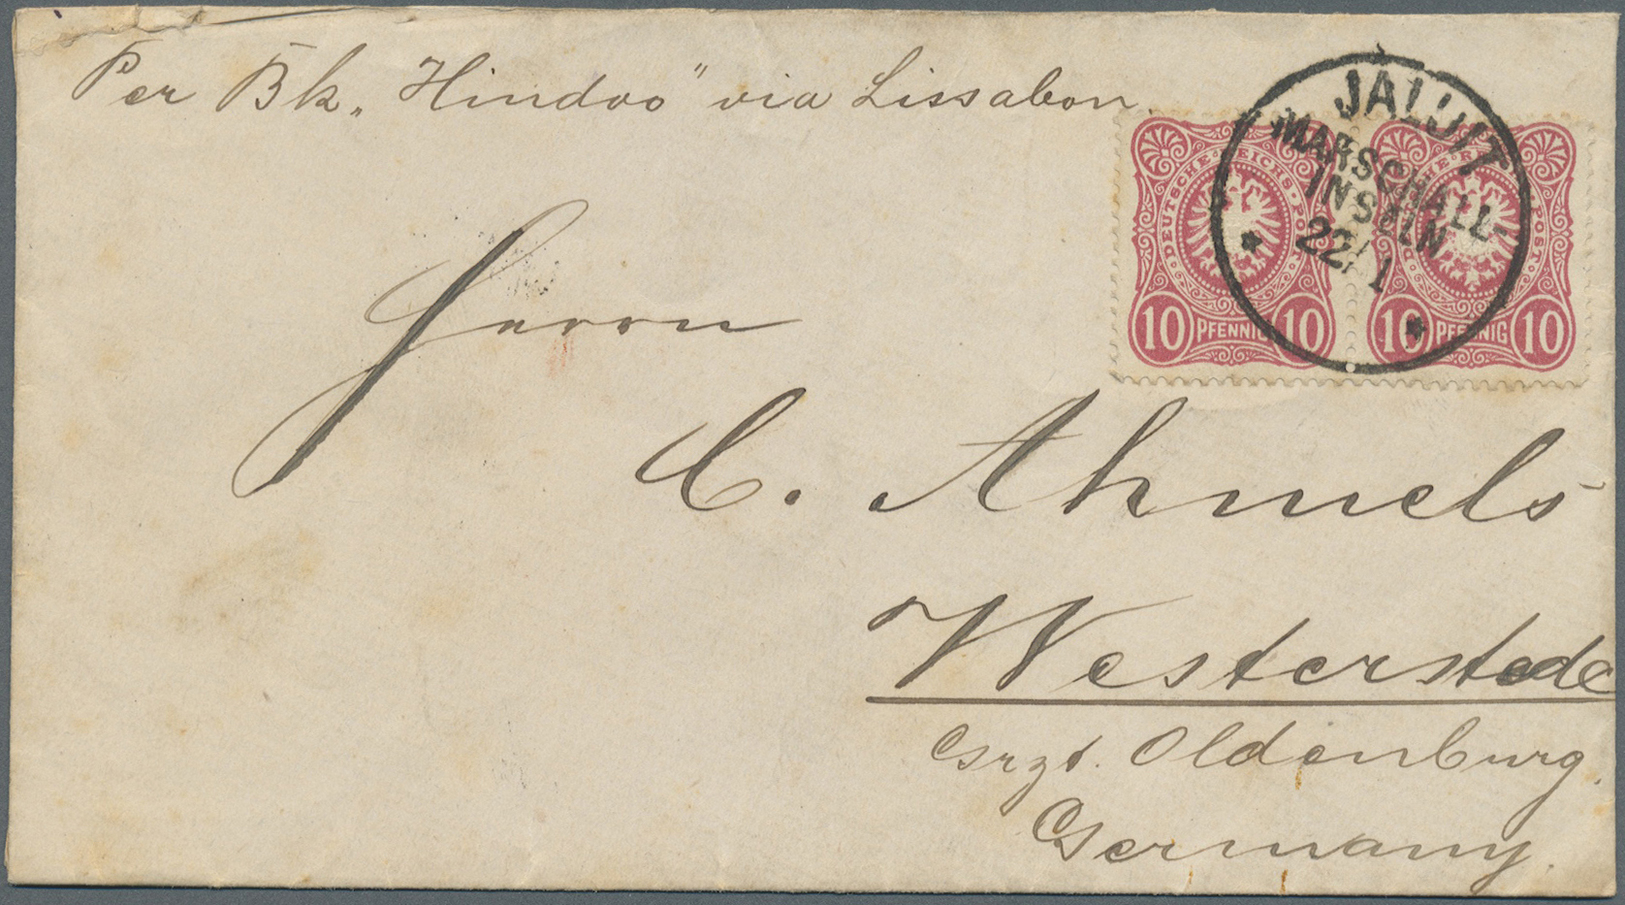 Per Bk. „Hindoo" via Lissabon.
JALUIT
MARSCHALL-
INSELN
22/ 1
DEUTSCHE REICHS-POST
10 PFENNIG 10
DEUTSCHE REICHS-POST
10 PFENNIG 10
Herrn
C. Ahmels
Westerstede
Grzt. Oldenburg.
Germany.